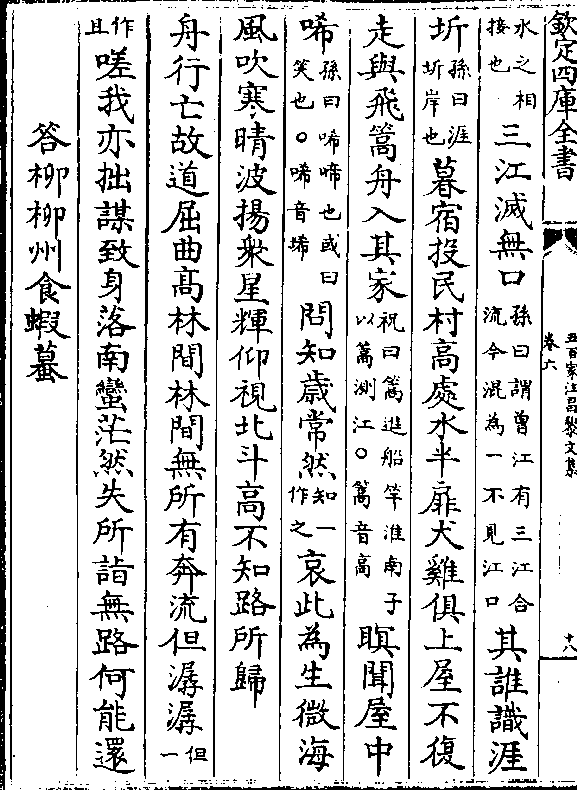 欽定四庫全書
五百家注昌黎文集
卷六
十八
水之相接也三江滅無口孫曰謂曾江有三江合流今混為一不見江口其誰識涯
圻孫曰涯圻岸也暮宿投民村高處水半扉犬雞俱上屋不復
走與飛篙舟入其家祝曰篙進船竿淮南子以篙測江○篙音高暝聞屋中
唏孫曰唏啼也或曰笑也○唏音狶問知歲常然知一作之哀此為生微海
風吹寒晴波揚衆星輝仰視北斗高不知路所歸
舟行亡故道屈曲高林間林間無所有奔流但潺潺但一
作且嗟我亦拙謀致身落南蠻茫然失所詣無路何能還
答柳柳州食蝦蟇